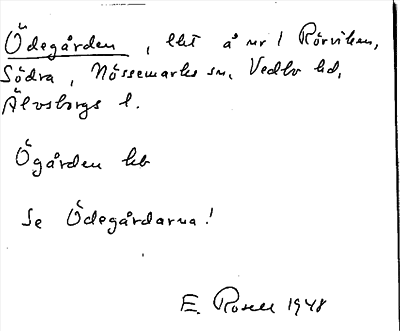 Ödegården, lht å nr 1 Rörviken,
Södra, Nössemarks sn, Vedbo hd,
Älvsborgs l.
Ögården lht
Se Ödegårdarna!
E. Rosell 1948